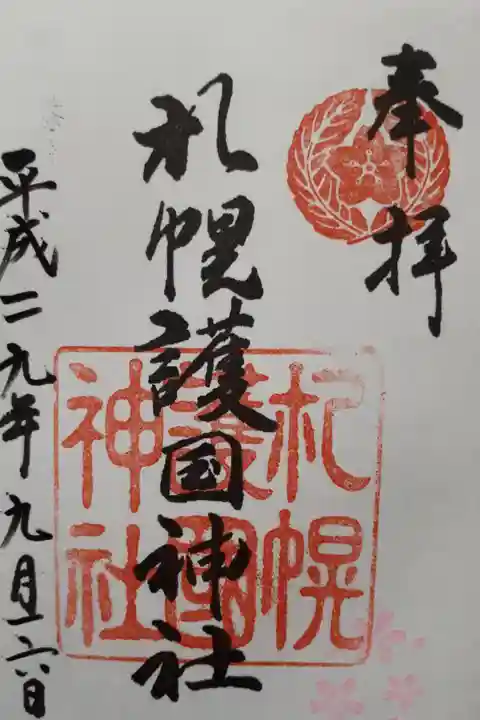 奉拝
札幌護国神社
平成二九年九月一六日
札幌
護國
神社